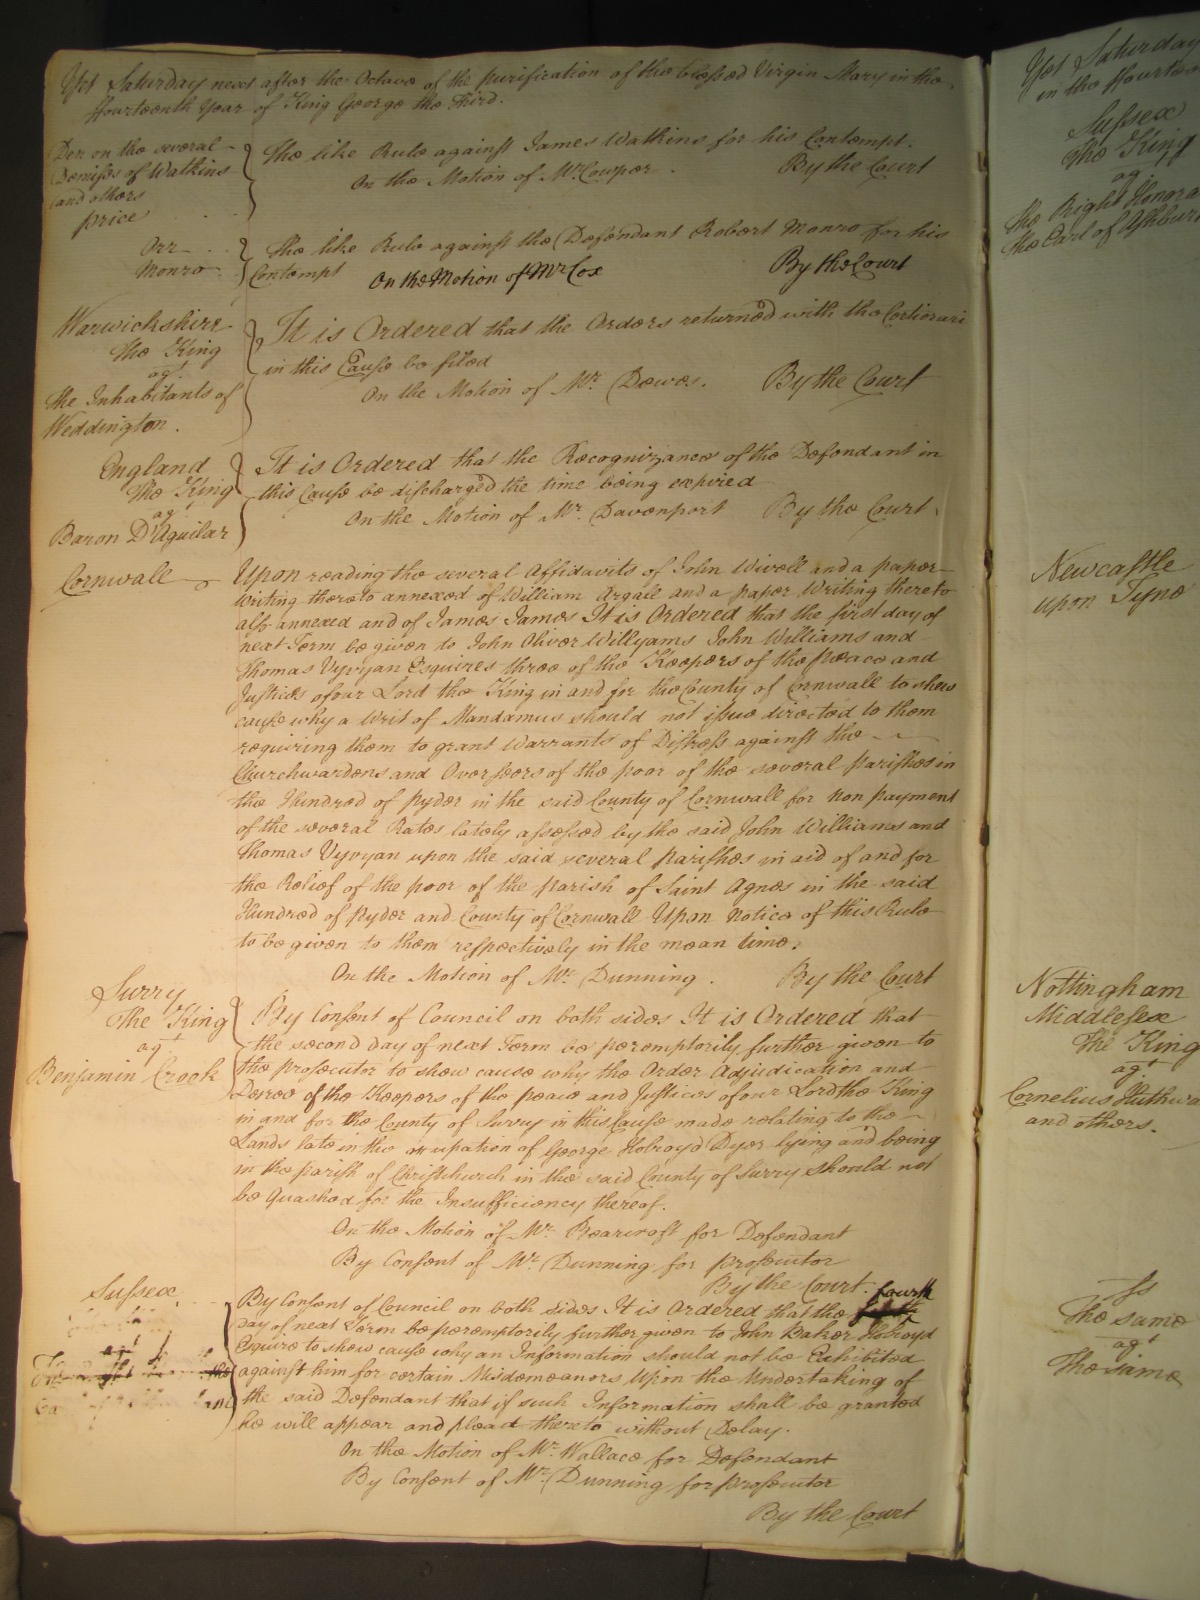 Yet Saturday next after the Octave of the purification of the blessed Virgin Mary in the
ffourteenth Year of King George the Third.
Den on the several
Demises of Watkins
and others
price
The like Rule against James Watkins for his Contempt.
On the Motion of Mr. Cowper. By the Court
Orr
Monro
The like Rule against the Defendant Robert Monro for his
Contempt On the Motion of Mr Cox By the Court
Warwickshire
The King
agt.
the Inhabitants of
Weddington.
It is Ordered that the Orders returned with the Certiorari
in this Cause be filed
On the Motion of Mr. Dewes. By the Court
England
The King
agt
Baron D'Aguilar
It is Ordered that the Recognizance of the Defendant in
this Cause be discharged the time being expired
On the Motion of Mr. Davenport By the Court.
Cornwall
Upon reading the several Affidavits of John Wivell and a paper
Writing thereto annexed of William Argall and a paper Writing thereto
also annexed and of James James It is Ordered that the first day of
next Term be given to John Oliver Willyams John Williams and
Thomas Vyvyan Esquires three of the Keepers of the peace and
Justices of our Lord the King in and for the County of Cornwall to shew
cause why a Writ of Mandamus should not issue directed to them
requiring them to grant Warrants of Distress against the
Churchwardens and Overseers of the poor of the several parishes in
the Hundred of pyder in the said County of Cornwall for non payment
of the several Rates lately assessed by the said John Williams and
Thomas Vyvyan upon the said several parishes in aid of and for
the Relief of the poor of the parish of Saint Agnes in the said
Hundred of pyder and County of Cornwall Upon Notice of this Rule
to be given to them respectively in the mean time.
On the Motion of Mr. Dunning. By the Court
Surry
The King
agt
Benjamin Crook
By Consent of Council on both sides It is Ordered that
the second day of next Term be peremptorily further given to
the prosecutor to shew cause why the Order Adjudication and
Decree of the Keepers of the peace and Justices of our Lord the King
in and for the County of Surry in this Cause made relating to the
Lands late in the occupation of George Holroyd Dyer lying and being
in the parish of Christchurch in the said County of Surry should not
be quashed for the Insufficiency thereof.
On the Motion of Mr. Bearcroft for Defendant
By Consent of Mr. Dunning for prosecutor
By the Court.
Sussex
agt
the
and
By Consent of Council on both sides It is Ordered that the fourth
day of next Term be peremptorily further given to John Baker Holroyd
Esquire to shew cause why an Information should not be Exhibited
against him for certain Misdemeanors Upon the Undertaking of
the said Defendant that if such Information shall be granted
he will appear and plead thereto without Delay.
On the Motion of Mr. Wallace for Defendant
By Consent of Mr. Dunning for prosecutor
By the Court
Yet Saturday
in the ffourteen
Sussex
The King
agt
the Right Honora
the Earl of Ashburn
Newcastle
upon Tyne
Nottingham
Middlesex
The King
agt
Cornelius Huthwa
and others.
The same
agt
The same